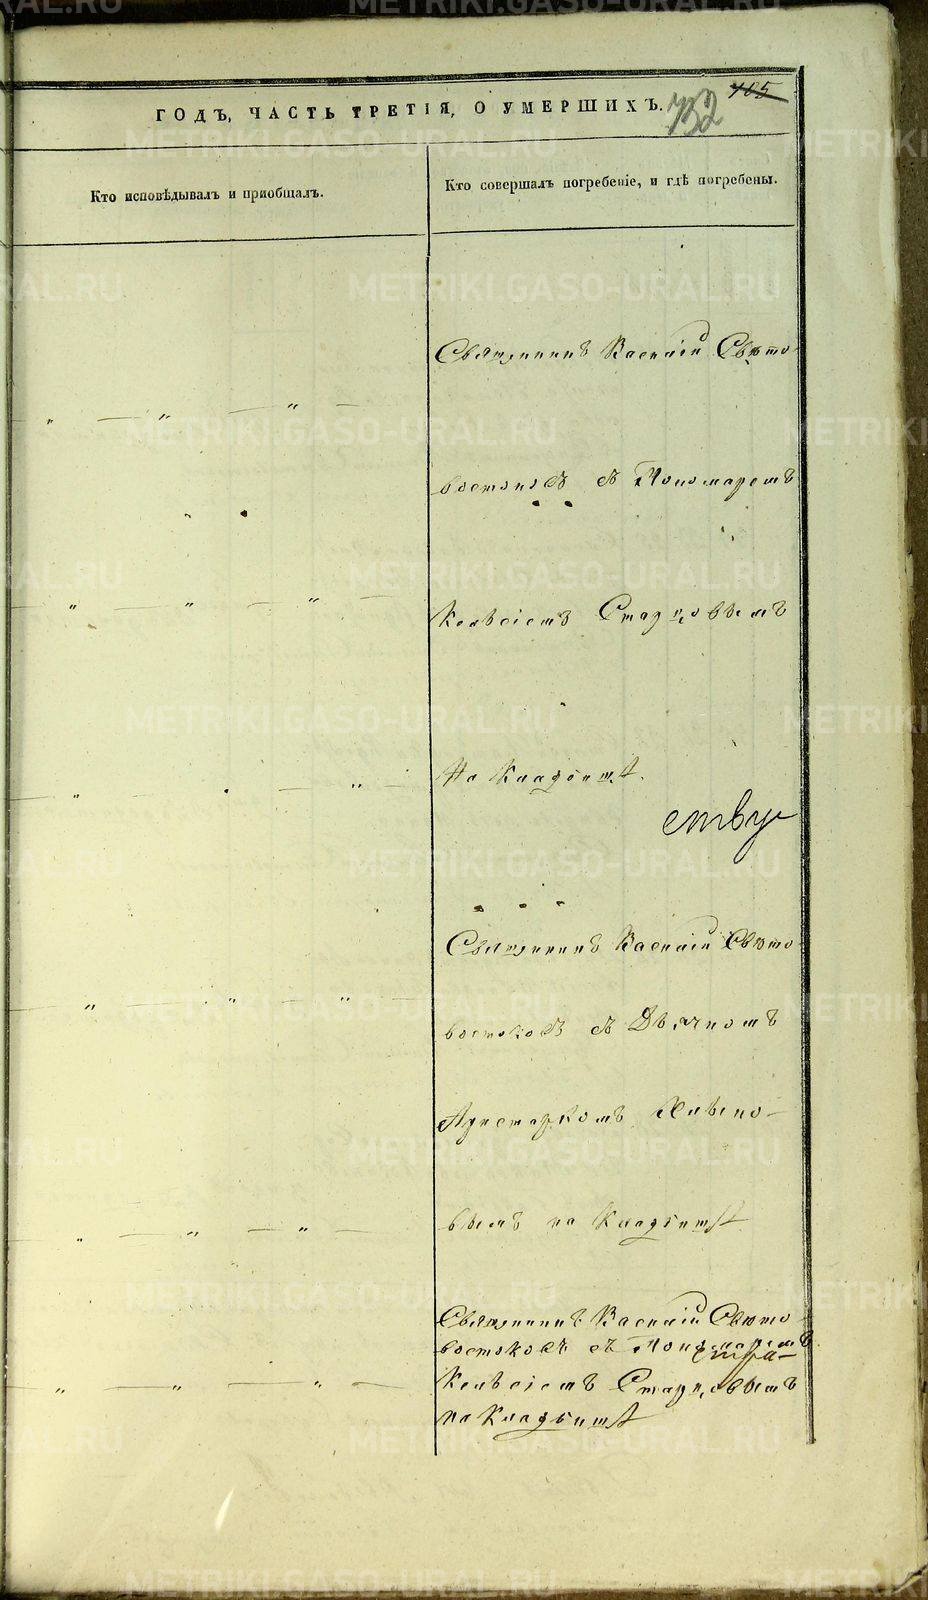 ГОДЪ, ЧАСТЬ ТРЕТІЯ, О УМЕРШИХЪ.
405
732
Кто исповѣдывалъ и приобщалъ.
Кто совершалъ погребеніе, и гдѣ погребены.
Священникъ Василій Свѣто-
востоковъ съ Пономаремъ
Старцовымъ
На Кладбищѣ.
ству
Священникъ Василій Свѣто-
востоковъ съ Дьячкомъ
Аристархомъ
вымъ на Кладбищѣ
Священникъ Василій Свѣто-
востоковъ съ Пономаремъ
Старцовымъ
на Кладбищѣ
METRIKI.GASO-URAL.RU